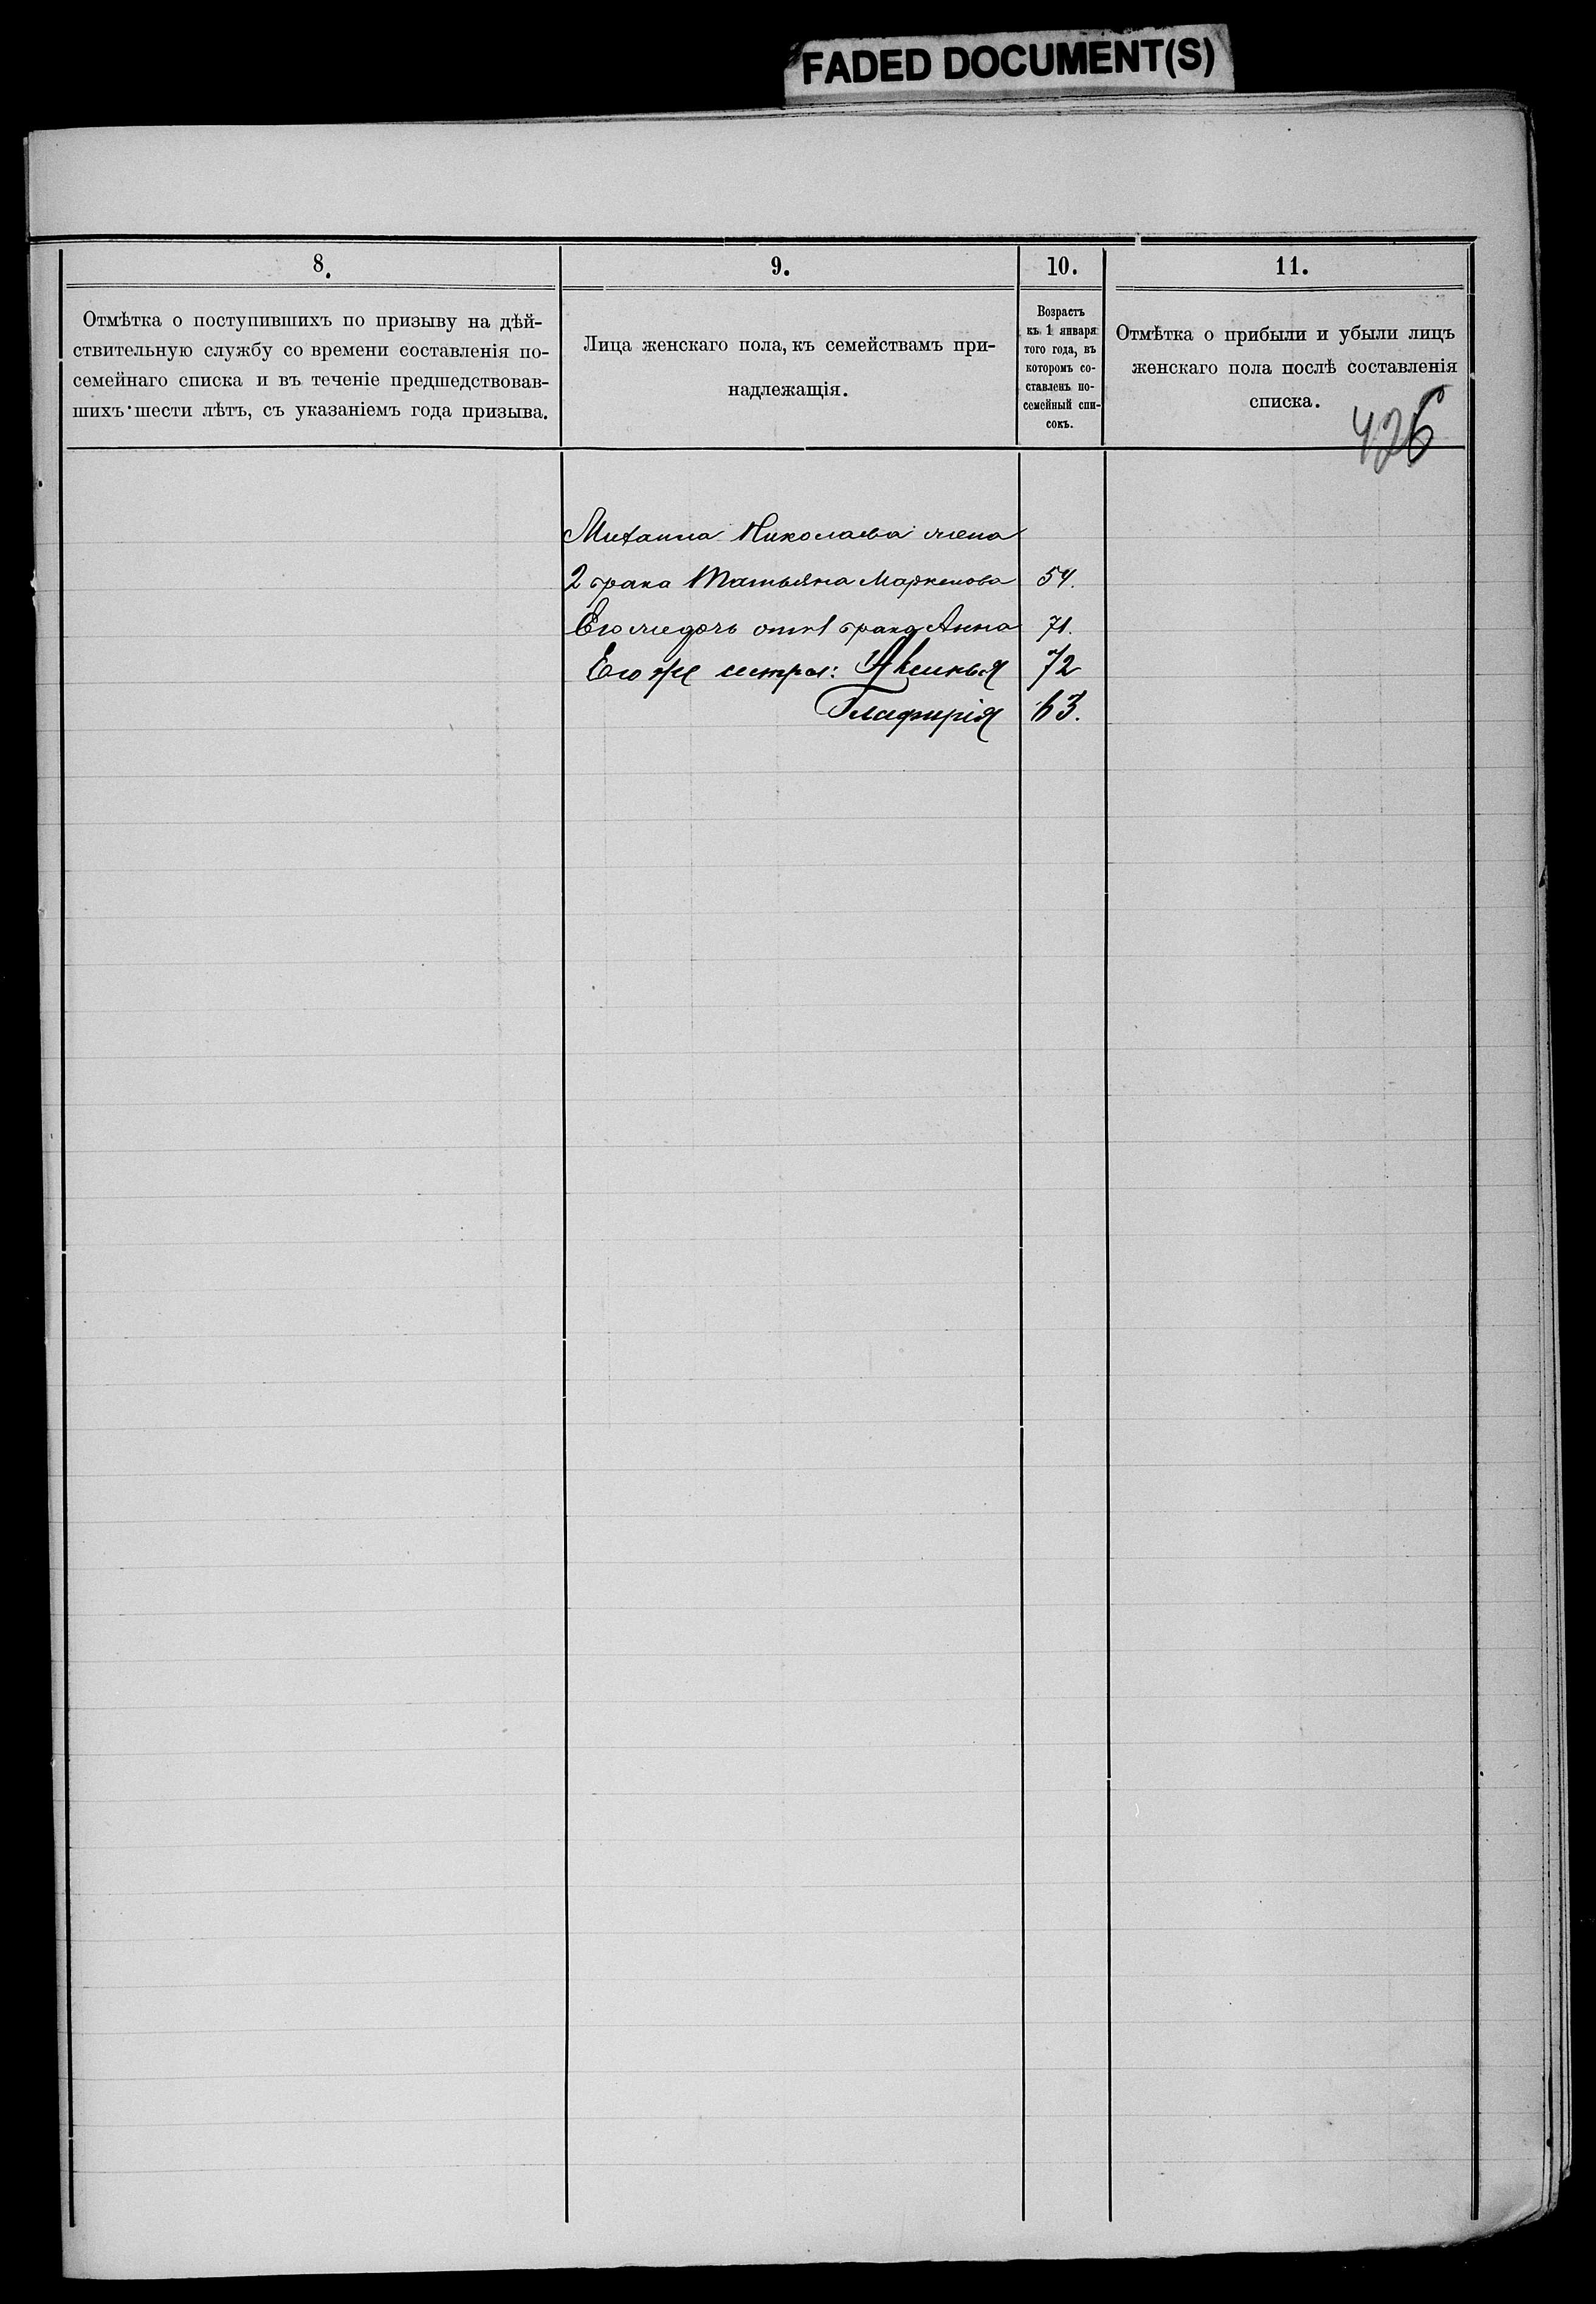 FADED DOCUMENT(S)
8.
Отмѣтка о поступившихъ по призыву на дѣй-
ствительную службу со времени составленія по-
семейнаго списка и въ теченіе предшедствовав-
шихъ шести лѣтъ, съ указаніемъ года призыва.
9.
Лица женскаго пола, къ семействамъ при-
надлежащія.
10.
Возрастъ
къ 1 января
того года, въ
которомъ со-
ставленъ по-
семейный спи-
сокъ.
11.
Отмѣтка о прибыли и убыли лицъ
женскаго пола послѣ составленія
списка.
426
Михаила Николаева жена
2 брака Татьяна Маркелова 54.
Его же дочь от 1 брака Анна 71.
Его же сестры: Аксинья 72
Глафирія 63.